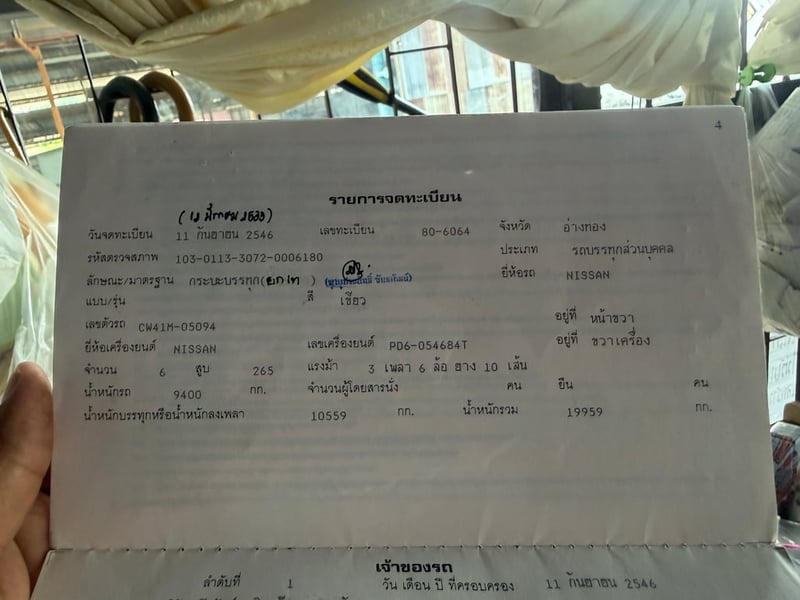 4
รายการจดทะเบียน
(12 มีนาคม 2533)
วันจดทะเบียน 11 กันยายน 2546 เลขทะเบียน 80-6064 จังหวัด อ่างทอง
รหัสตรวจสภาพ 103-0113-3072-0006180 ประเภท รถบรรทุกส่วนบุคคล
ลักษณะ/มาตรฐาน กระบะบรรทุก(ยกเท) ยี่ห้อรถ NISSAN
แบบ/รุ่น สี เขียว
เลขตัวรถ CW41M-05094 อยู่ที่ หน้าขวา
ยี่ห้อเครื่องยนต์ NISSAN เลขเครื่องยนต์ PD6-054684T อยู่ที่ ขวาเครื่อง
จำนวน 6 สูบ 265 แรงม้า 3 เพลา 6 ล้อ ยาง 10 เส้น
น้ำหนักรถ 9400 กก. จำนวนผู้โดยสารนั่ง คน ยืน คน
น้ำหนักบรรทุกหรือน้ำหนักลงเพลา 10559 กก. น้ำหนักรวม 19959 กก.
เจ้าของรถ
ลำดับที่ 1 วัน เดือน ปี ที่ครอบครอง 11 กันยายน 2546